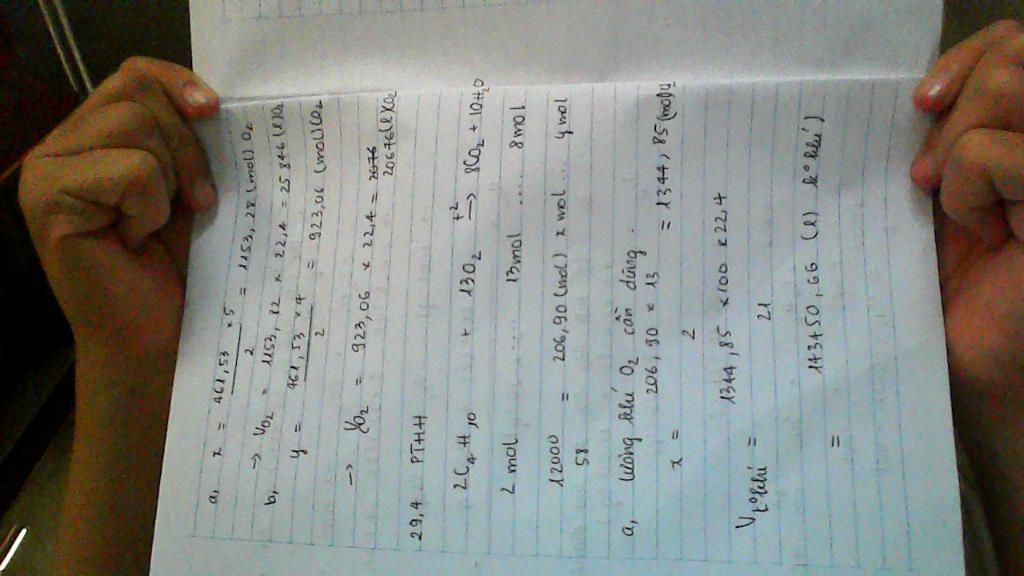 a, x = 461,53 × 5 / 2 = 1153,28 (mol) O2
b, → VO2 = 1153,82 × 22,4 = 25846 (l) O2
y = 461,53 × 4 / 2 = 923,06 (mol) CO2
→ VCO2 = 923,06 × 22,4 = 2076
20676 (l) CO2
29,4 PTHH
2C4H10 + 13O2 t° → 8CO2 + 10H2O
2 mol ....... 13mol ..... 8mol
12000 / 58 = 206,90 (mol) x mol ... y mol
a, lượng khí O2 cần dùng.
x = 206,90 × 13 / 2 = 1344,85 (mol)
V k° khí = 1344,85 × 100 × 22,4 / 21
= 143450,66 (l) k° khí)